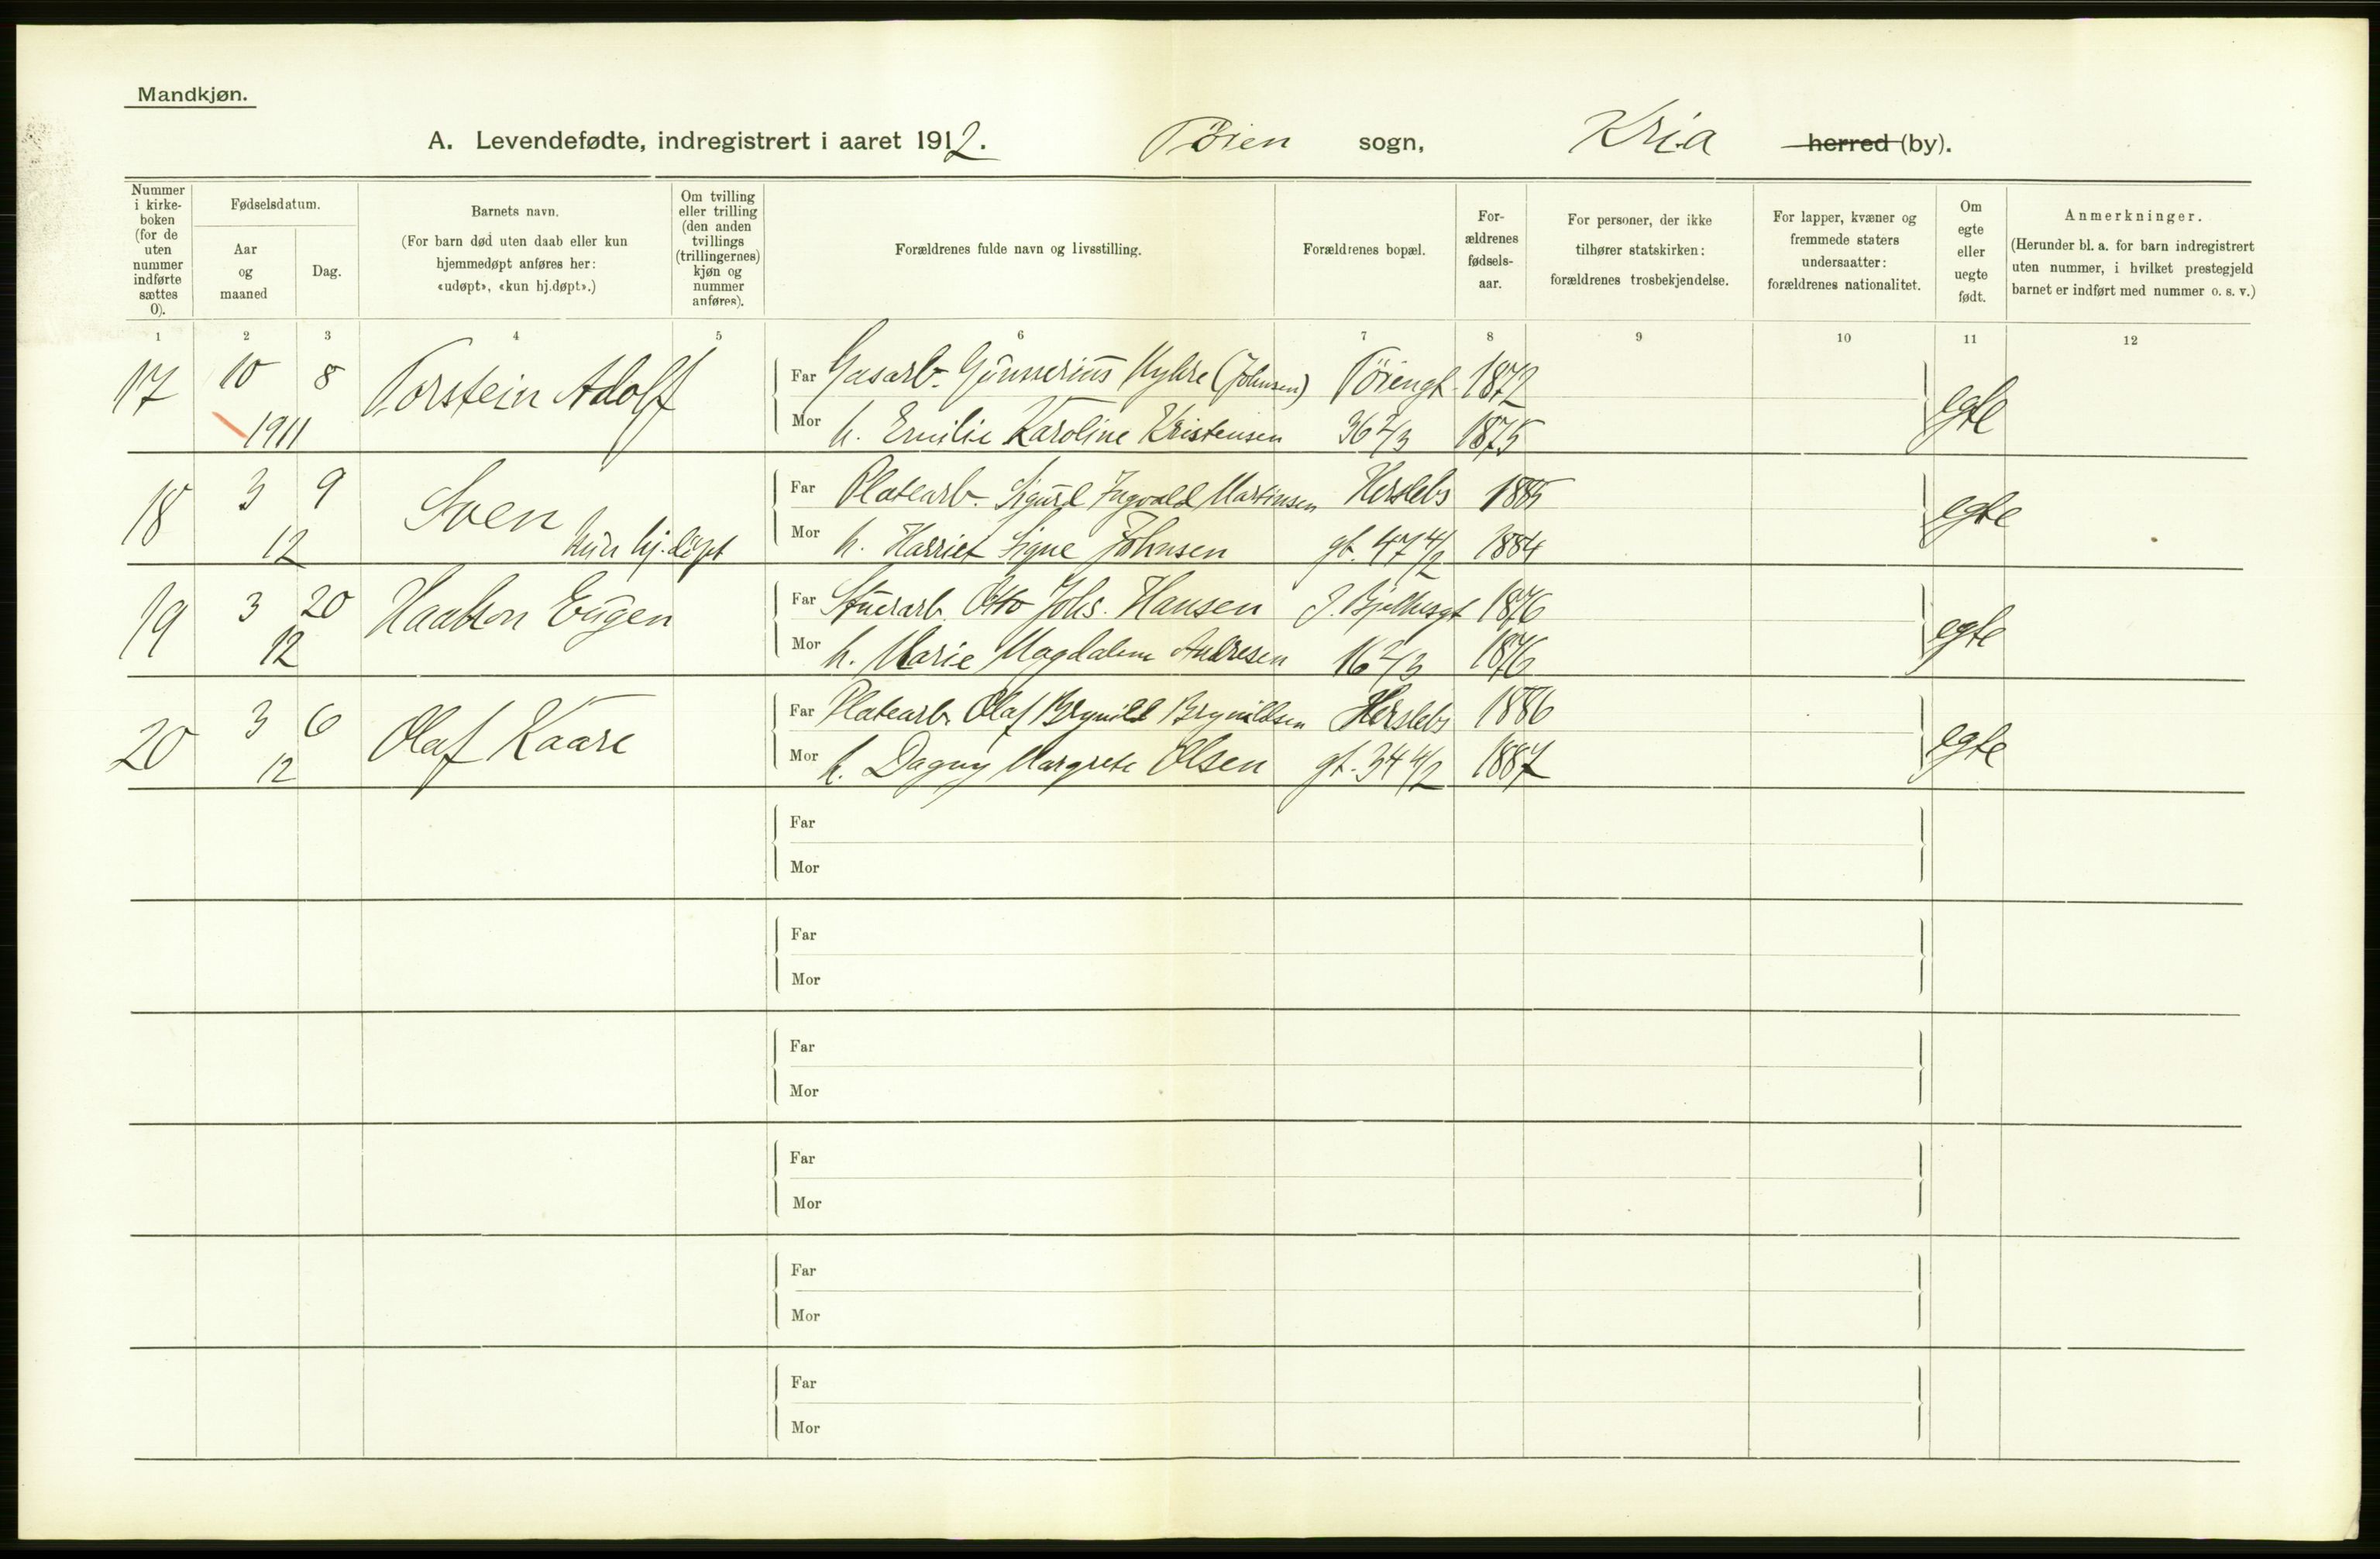 Mandkjøn.
A. Levendefødte, indregistrert i aaret 1912. Tøien sogn, Kria herred (by).
Nummer i kirke- boken (for de uten nummer indførte sættes 0).
Fødselsdatum.
Aar og maaned
Dag.
Barnets navn.
(For barn død uten daab eller kun hjemmedøpt anføres her: «udøpt», «kun hj.døpt».)
Om tvilling eller trilling (den anden tvillings (trillingernes) kjøn og nummer anføres).
Forældrenes fulde navn og livsstilling.
Forældrenes bopæl.
For- ældrenes fødsels- aar.
For personer, der ikke tilhører statskirken: forældrenes trosbekjendelse.
For lapper, kvæner og fremmede staters undersaatter: forældrenes nationalitet.
Om egte eller uegte født.
Anmerkninger.
(Herunder bl. a. for barn indregistrert uten nummer, i hvilket prestegjeld barnet er indført med nummer o. s. v.)
1 2 3 4 5 6 7 8 9 10 11 12
17 10 8 Torstein Adolf Far Gasarb. Gunnerius (Johnsen) Tøiengt. 1872 egte
1911 Mor h. Emilie Karoline Kristensen 36 2/3 1875
18 3 9 Sven Far Platearb. Sigurd Ingvald Martinsen Herslebs 1885 egte
12 kun hj.døpt Mor h. Harriet Signe Johnsen gt. 47 4/2 1884
19 3 20 Haakon Eugen Far Stuerarb. Otto Johs. Hansen 1876 egte
12 Mor h. Marie Magdalene Andresen 16 2/3 1876
20 3 6 Olaf Kaare Far Platearb. Olaf Brynild Brynildsen Herslebs 1886 egte
12 Mor h. Dagny Margrete Olsen gt. 34 4/2 1887
Far
Mor
Far
Mor
Far
Mor
Far
Mor
Far
Mor
Far
Mor